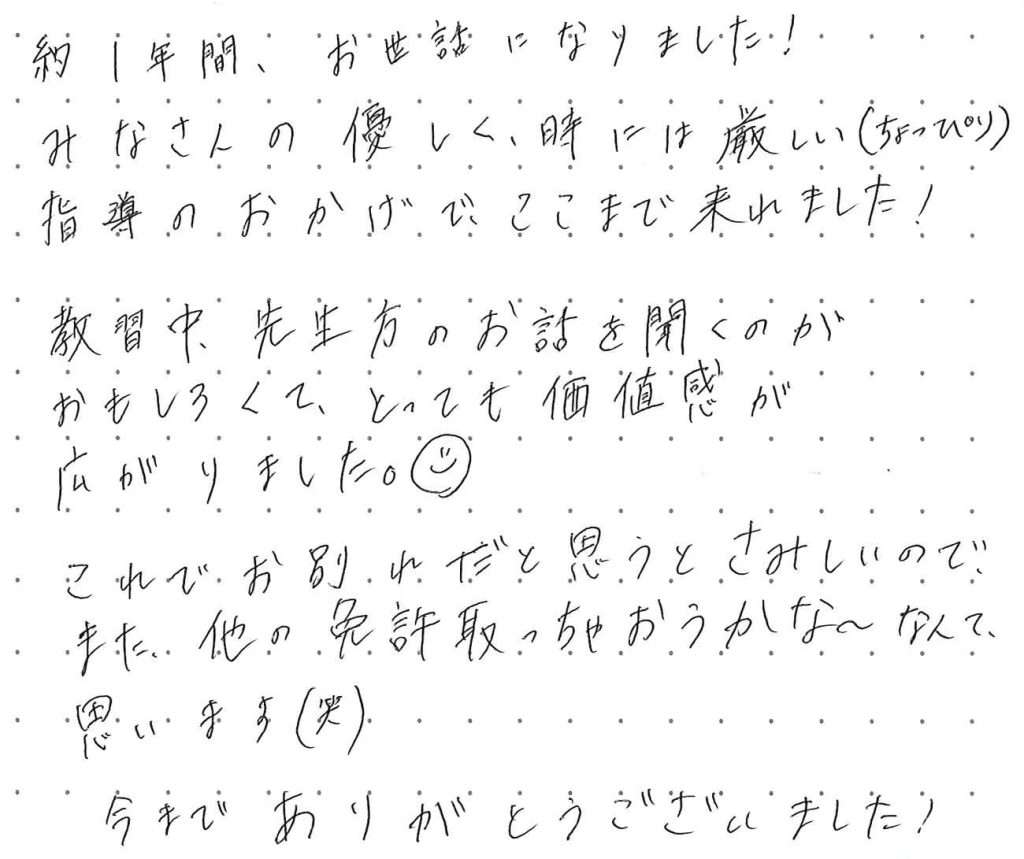 約1年間、お世話になりました!
みなさんの優しく、時には厳しい(ちょっぴり)
指導のおかげで、ここまで来れました!
教習中、先生方のお話を聞くのが
おもしろくて、とっても価値感が
広がりました。☺
これでお別れだと思うとさみしいので、
また、他の免許取っちゃおうかな〜なんて、
思います(笑)
今までありがとうございました!